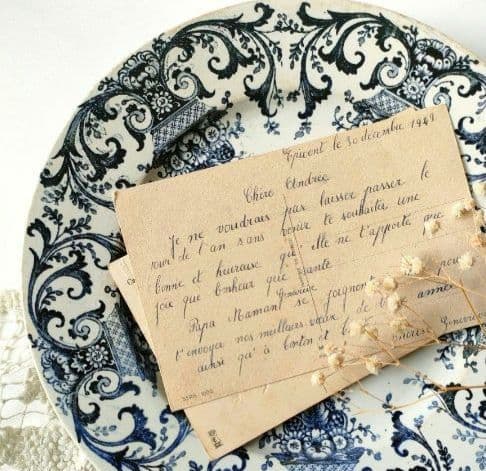 le 30 décembre 1949
Chère Andrée
Je ne voudrais pas laisser passer le
jour de l'an sans venir te souhaiter une
bonne et heureuse qu'elle ne t'apporte que
joie que bonheur que santé
Papa Maman Geneviève se joignent pour
t'envoyer nos meilleurs vœux de année
ainsi qu'à tonton et